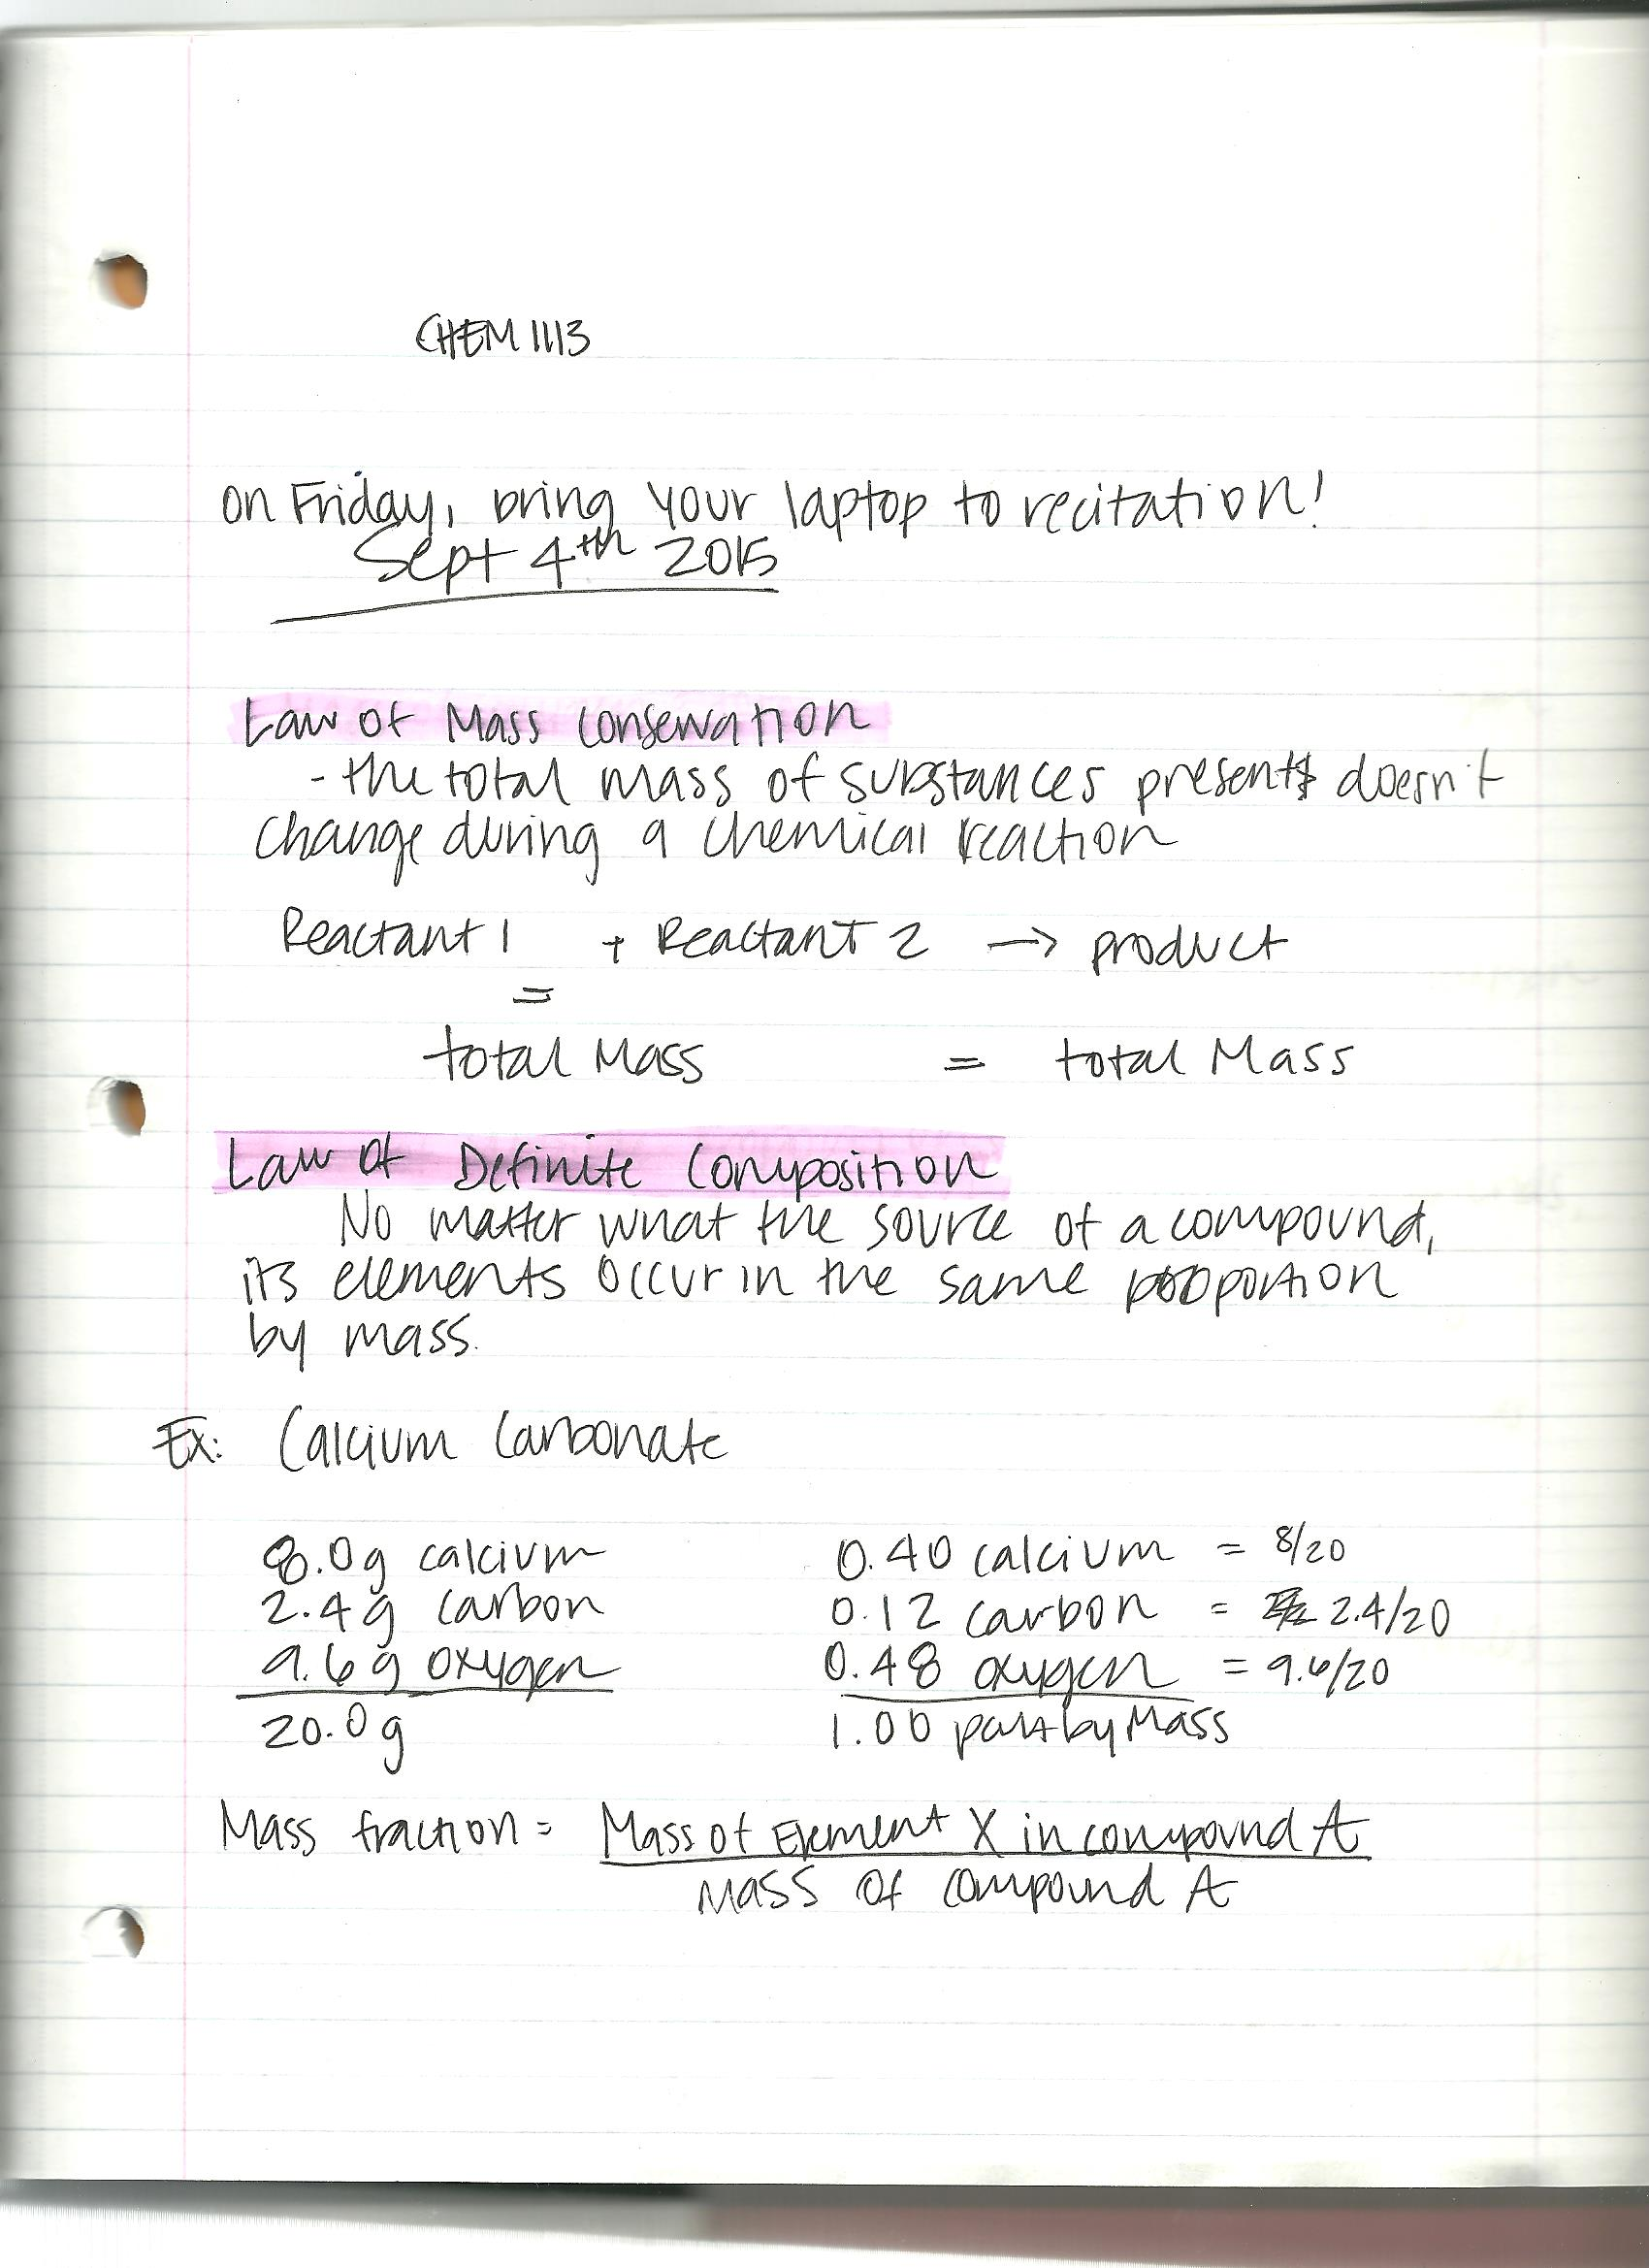 CHEM 1113
On Friday, bring your laptop to recitation!
Sept 4th 2015
Law of Mass Conservation
- the total mass of substances present doesn't
change during a chemical reaction
Reactant 1 + Reactant 2 → product
=
total Mass = total Mass
Law of Definite Composition
No matter what the source of a compound,
its elements occur in the same proportion
by mass.
Ex: Calcium Carbonate
8.0g calcium 0.40 calcium = 8/20
2.4g carbon 0.12 carbon = 2.4/20
9.6g oxygen 0.48 oxygen = 9.6/20
20.0g 1.00 part by Mass
Mass fraction = Mass of Element X in compound A
Mass of compound A